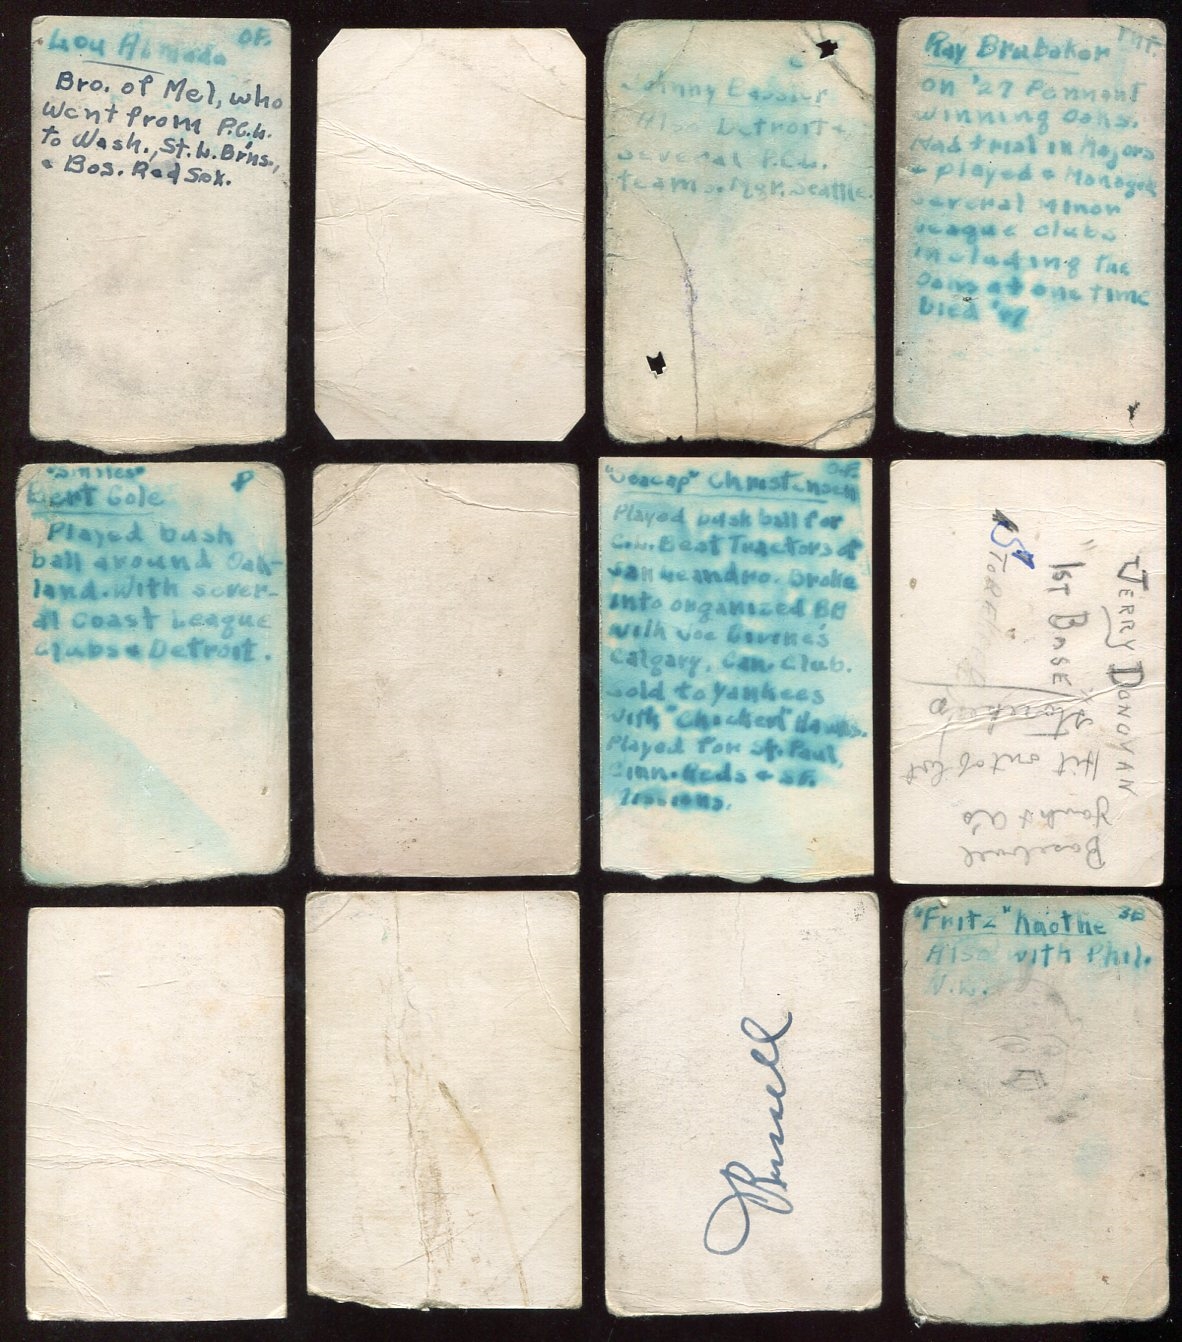 Lou Almada OF.
Bro. of Mel, who
went from P.C.L.
to Wash., St. L. Brns.,
& Bos. Red Sox.
Johnny Bassler
Also Detroit &
several P.C.L.
teams. Mgr. Seattle.
Ray Brubaker INF.
on '27 Pennant
winning Oaks.
Had trial in Majors
& played & Managed
several minor
league clubs
including the
Oaks at one time
Died
"Smiles"
Bert Cole P
Played bush
ball around Oak-
land. With sever-
al Coast League
clubs & Detroit.
"Seacap" Christensen OF.
Played bush ball for
C.L. Best Tractors of
San Leandro. Broke
into organized BB
with Joe Devine's
Calgary, Can. Club.
Sold to Yankees
with "Chicken" Hawks.
Played for St. Paul,
Cinn. Reds & S.F.
Missions.
JERRY DONOVAN
1ST BASE
Hit out of lot
Baseball
Russell
"Fritz" Knothe 3B
Also with Phil.
N.L.